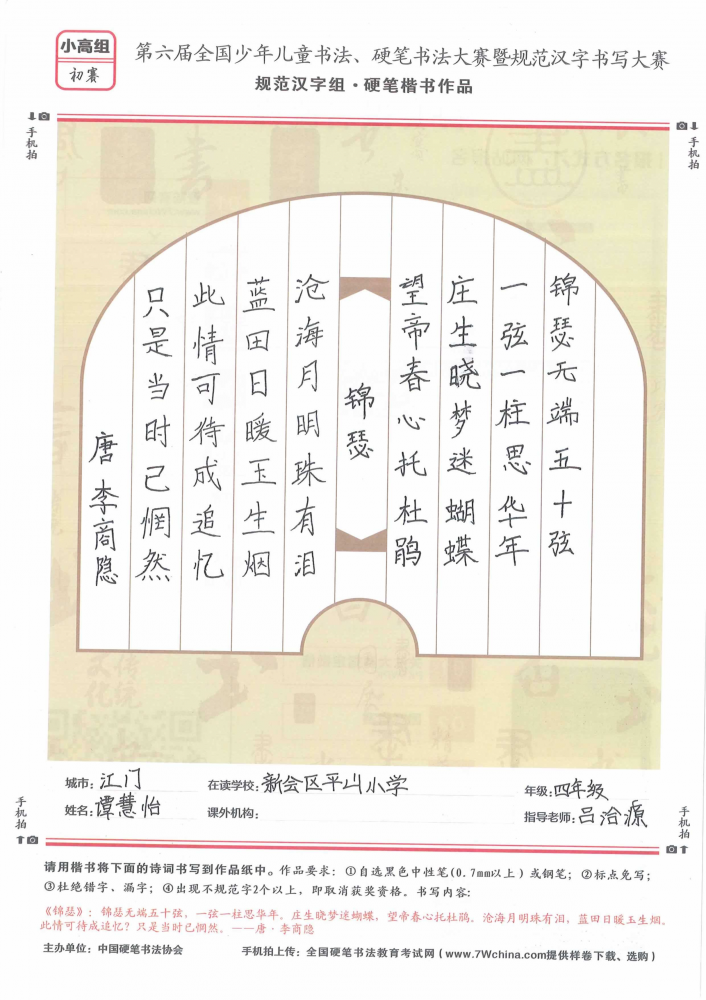 小高组
初赛
第六届全国少年儿童书法、硬笔书法大赛暨规范汉字书写大赛
规范汉字组·硬笔楷书作品
手机拍
手机拍
锦瑟无端五十弦
一弦一柱思华年
庄生晓梦迷蝴蝶
望帝春心托杜鹃
锦瑟
沧海月明珠有泪
蓝田日暖玉生烟
此情可待成追忆
只是当时已惘然
唐 李商隐
城市：江门
在读学校：新会区平山小学
年级：四年级
姓名：谭慧怡
课外机构：
指导老师：吕洽源
手机拍
手机拍
请用楷书将下面的诗词书写到作品纸中。作品要求：①自选黑色中性笔(0.7mm以上）或钢笔；②标点免写；
③杜绝错字、漏字；④出现不规范字2个以上，即取消获奖资格。书写内容：
《锦瑟》：锦瑟无端五十弦，一弦一柱思华年。庄生晓梦迷蝴蝶，望帝春心托杜鹃。沧海月明珠有泪，蓝田日暖玉生烟。
此情可待成追忆？只是当时已惘然。——唐·李商隐
主办单位：中国硬笔书法协会
手机拍上传：全国硬笔书法教育考试网（www.7Wchina.com提供样卷下载、选购）